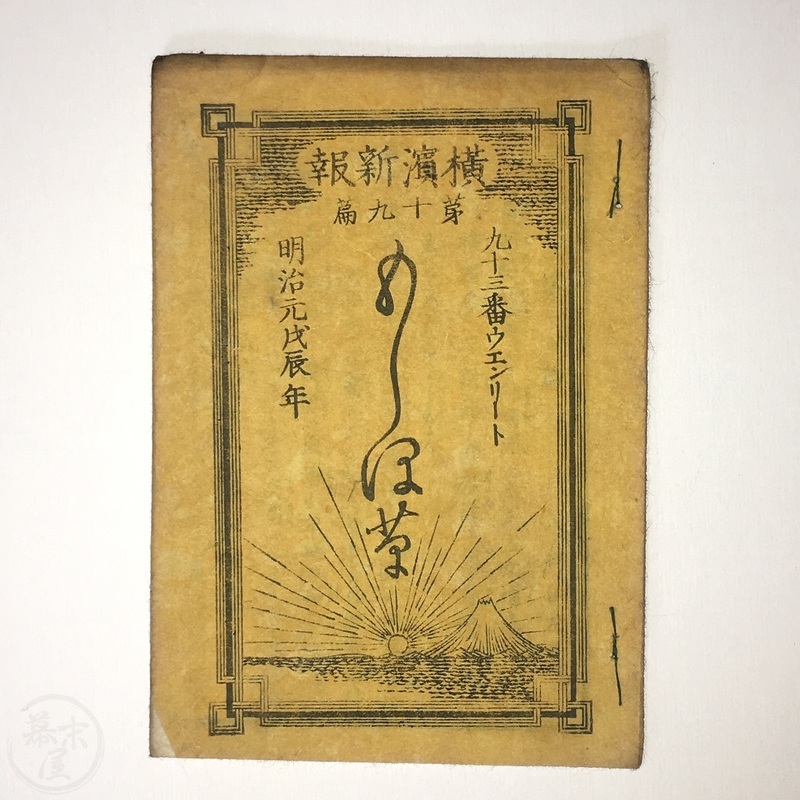 横濱新報
苐十九篇
九十三番ウエンリート
もしほ草
明治元戊辰年
幕末屋